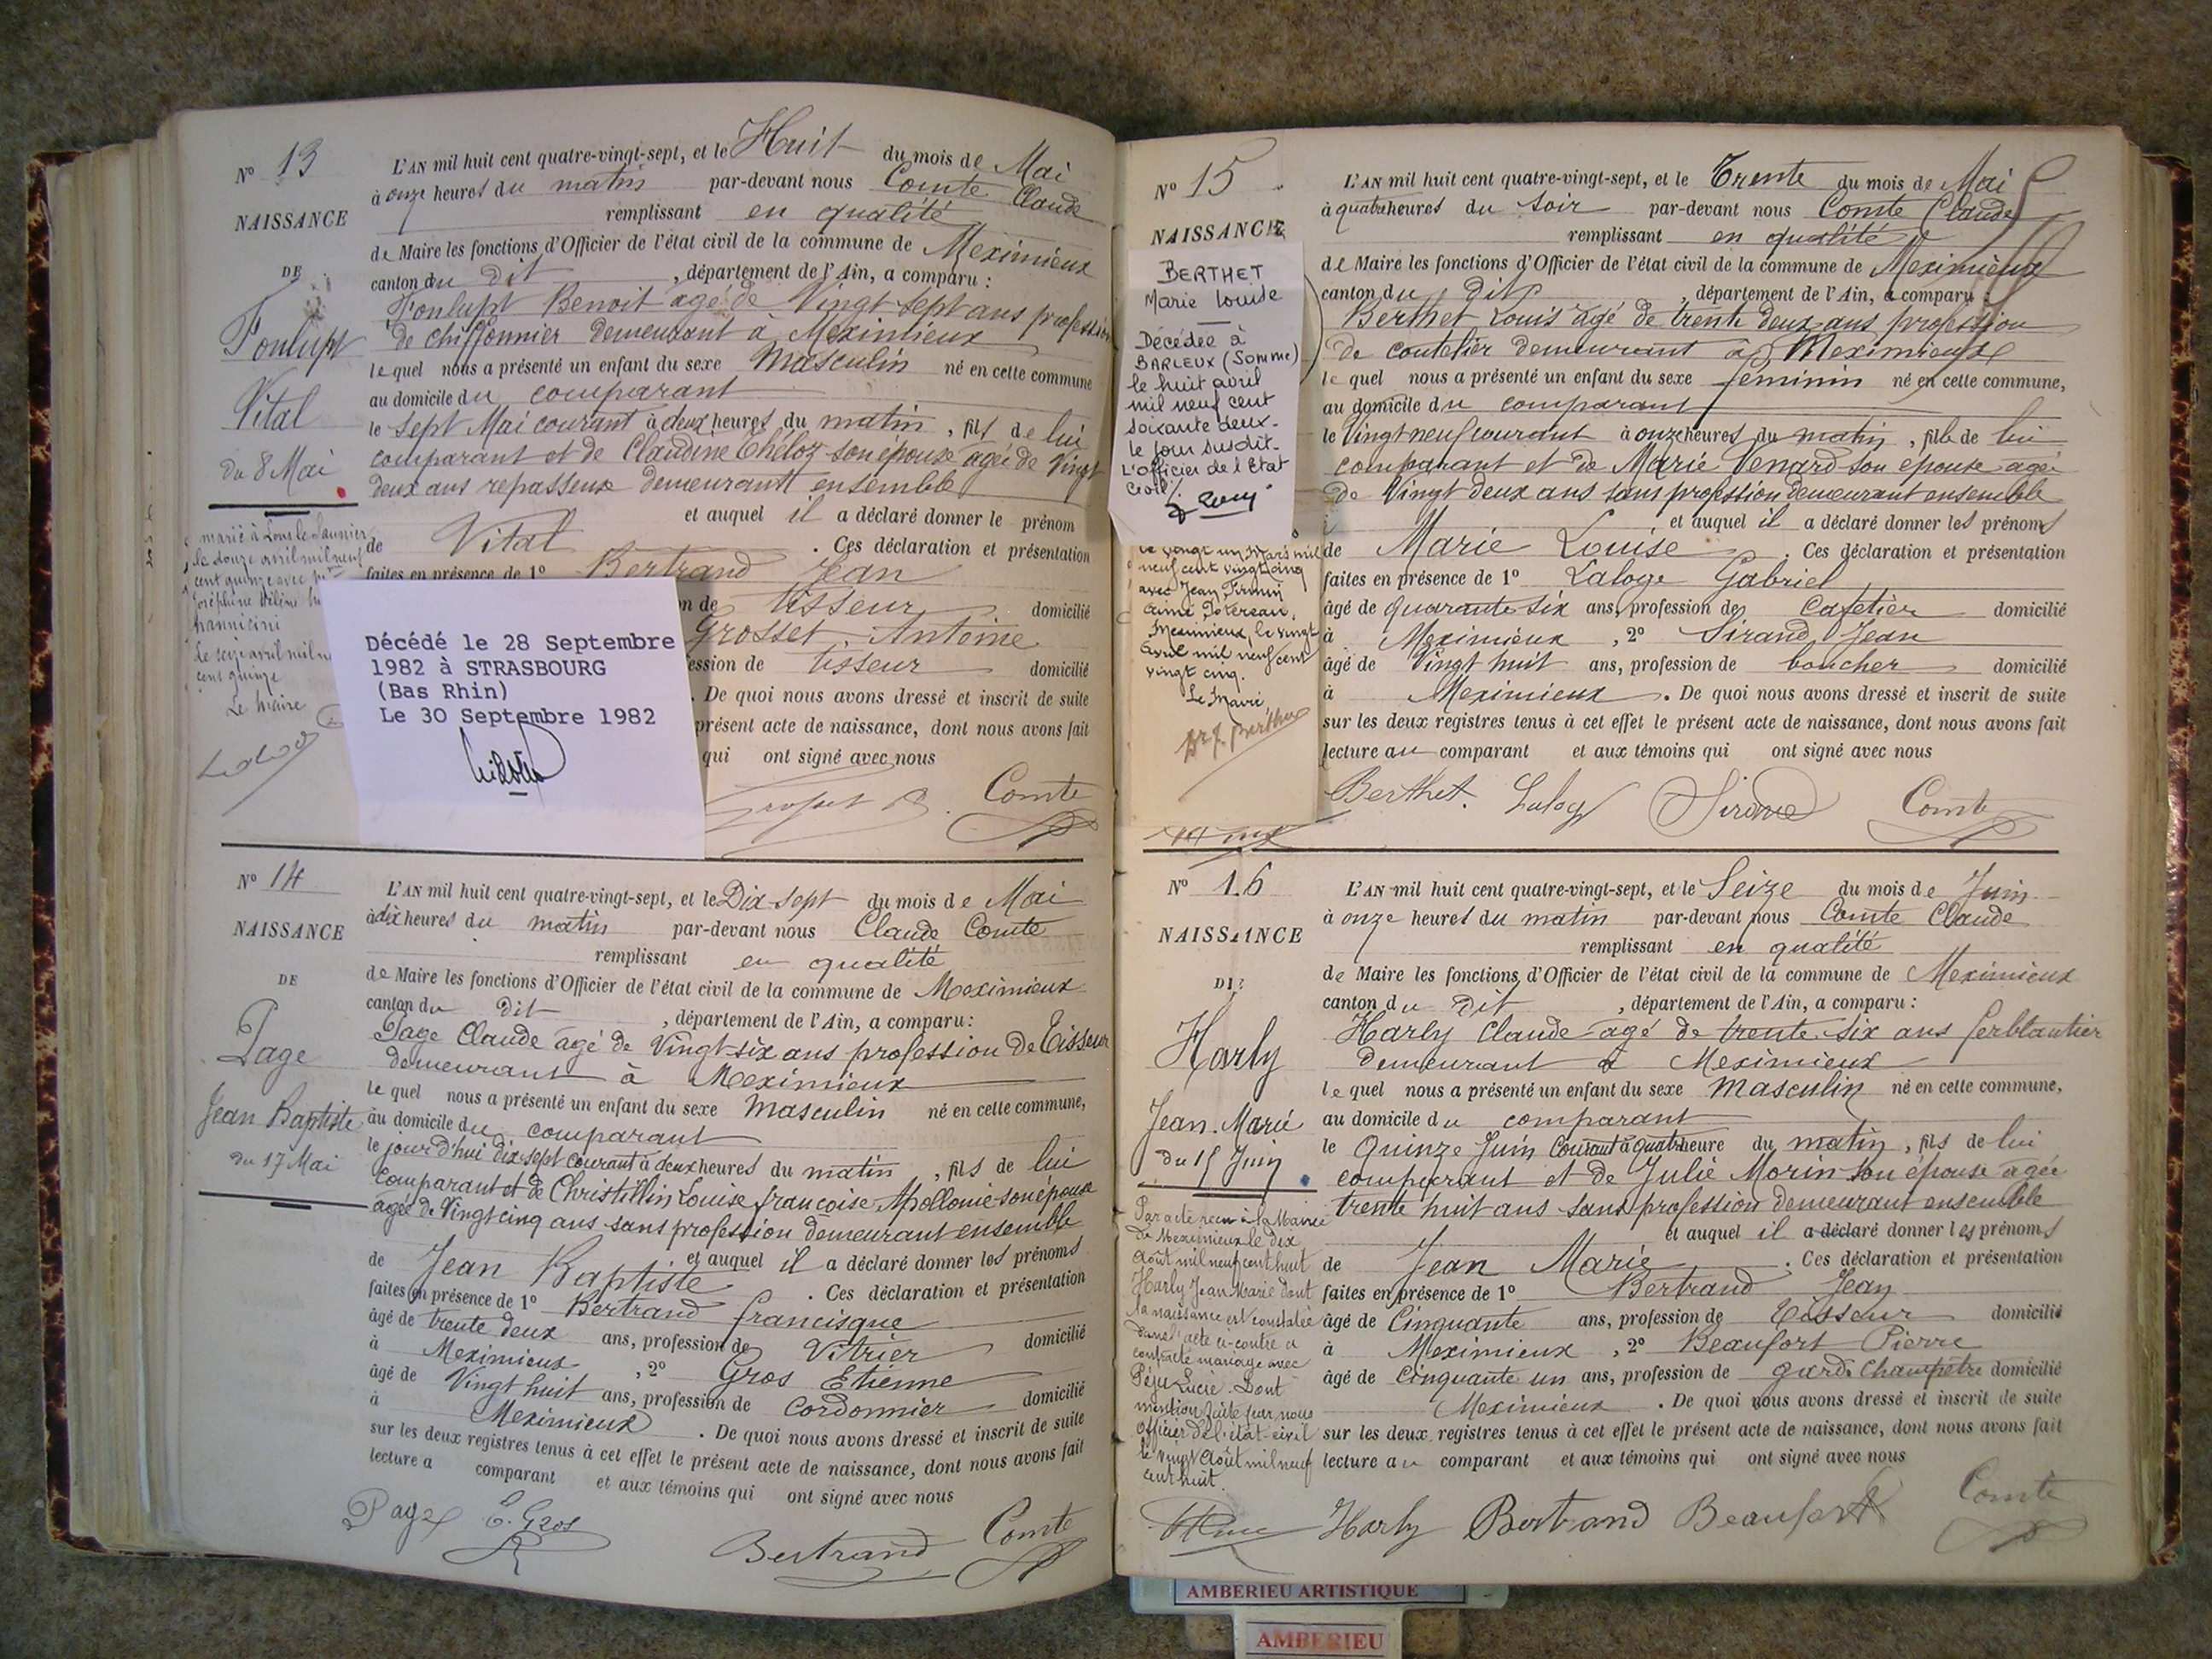 N° 13
NAISSANCE
DE
Fonlupt
Vital
du 8 Mai
marié à Lons le Saunier
le douze avril mil neuf
cent quinze avec
Joséphine
Le seize avril mil
cent quinze
Le Maire
L'AN mil huit cent quatre-vingt-sept, et le Huit du mois de Mai
à onze heures du matin par-devant nous Comte Claude
remplissant en qualité
de Maire les fonctions d'Officier de l'état civil de la commune de Meximieux
canton du dit, département de l'Ain, a comparu :
Fonlupt Benoit agé de Vingt sept ans profession
de chiffonnier demeurant à Meximieux
le quel nous a présenté un enfant du sexe Masculin né en cette commune
au domicile du comparant
le sept Mai courant à deux heures du matin, fils de lui
comparant et de Claudine Théloz son épouse agée de Vingt
deux ans repasseuse demeurant ensemble
et auquel il a déclaré donner le prénom
de Vital. Ces déclaration et présentation
faites en présence de 1° Bertrand Jean
n de tisseur domicilié
Grosset Antoine
ession de tisseur domicilié
. De quoi nous avons dressé et inscrit de suite
présent acte de naissance, dont nous avons fait
qui ont signé avec nous
Comte
Décédé le 28 Septembre
1982 à STRASBOURG
(Bas Rhin)
Le 30 Septembre 1982
N° 14
NAISSANCE
DE
Page
Jean Baptiste
du 17 Mai
L'AN mil huit cent quatre-vingt-sept, et le Dix-sept du mois de Mai
à dix heures du matin par-devant nous Claude Comte
remplissant en qualité
de Maire les fonctions d'Officier de l'état civil de la commune de Meximieux
canton du dit, département de l'Ain, a comparu :
Page Claude agé de Vingt-six ans profession de Tisseur
demeurant à Meximieux
le quel nous a présenté un enfant du sexe Masculin né en cette commune,
au domicile du comparant
le jourd'hui dix sept courant à deux heures du matin, fils de lui
comparant et de Christillin Louise françoise Apollonie son épouse
agée de Vingt cinq ans sans profession demeurant ensemble
et auquel il a déclaré donner les prénoms
de Jean Baptiste. Ces déclaration et présentation
faites en présence de 1° Bertrand francisque
âgé de trente deux ans, profession de Vitrier domicilié
à Meximieux, 2° Gros Etienne
âgé de Vingt huit ans, profession de Cordonnier domicilié
à Meximieux. De quoi nous avons dressé et inscrit de suite
sur les deux registres tenus à cet effet le présent acte de naissance, dont nous avons fait
lecture a comparant et aux témoins qui ont signé avec nous
Page E. Gros Bertrand Comte
N° 15
NAISSANCE
BERTHET
Marie Louise
Décédée à
BARLEUX (Somme)
le huit avril
mil neuf cent
soixante deux.
Le jour susdit.
L'officier de l'Etat
Civil
le vingt un Mars mil
neuf cent vingt cinq
avec Jean Firmin
Aimé Potereau.
Meximieux, le vingt
Avril mil neuf cent
vingt cinq.
Le Maire
L'AN mil huit cent quatre-vingt-sept, et le Trente du mois de Mai
à quatre heures du soir par-devant nous Comte Claude
remplissant en qualité
de Maire les fonctions d'Officier de l'état civil de la commune de Meximieux
canton du dit, département de l'Ain, a comparu :
Berthet Louis agé de trente deux ans profession
de coutelier demeurant à Meximieux
le quel nous a présenté un enfant du sexe féminin né en cette commune,
au domicile du comparant
le Vingt neuf courant à onze heures du matin, fille de lui
comparant et de Marie Venard son épouse agée
de Vingt deux ans sans profession demeurant ensemble
et auquel il a déclaré donner les prénoms
de Marie Louise. Ces déclaration et présentation
faites en présence de 1° Laloge Gabriel
âgé de quarante six ans, profession de Cafetier domicilié
à Meximieux, 2° Sirand Jean
âgé de Vingt huit ans, profession de boucher domicilié
à Meximieux. De quoi nous avons dressé et inscrit de suite
sur les deux registres tenus à cet effet le présent acte de naissance, dont nous avons fait
lecture au comparant et aux témoins qui ont signé avec nous
Berthet. Laloge Sirand Comte
N° 16
NAISSANCE
DE
Harly
Jean-Marie
du 15 Juin
Par acte reçu à la Mairie
de Meximieux le dix
Août mil neuf cent huit
Harly Jean Marie dont
la naissance est constatée
dans l'acte ci-contre a
contracté mariage avec
Péju Lucie. Dont
mention faite par nous
Officier de l'état-civil
le vingt Août mil neuf
cent huit.
L'AN mil huit cent quatre-vingt-sept, et le Seize du mois de Juin
à onze heures du matin par-devant nous Comte Claude
remplissant en qualité
de Maire les fonctions d'Officier de l'état civil de la commune de Meximieux
canton du dit, département de l'Ain, a comparu :
Harly Claude agé de trente six ans ferblantier
demeurant à Meximieux
le quel nous a présenté un enfant du sexe Masculin né en cette commune,
au domicile du comparant
le Quinze Juin Courant à quatre heure du matin, fils de lui
comparant et de Julie Morin son épouse agée
trente huit ans sans profession demeurant ensemble
et auquel il a déclaré donner les prénoms
de Jean Marie. Ces déclaration et présentation
faites en présence de 1° Bertrand Jean
âgé de Cinquante ans, profession de Tisseur domicilié
à Meximieux, 2° Beaufort Pierre
âgé de Cinquante un ans, profession de garde Champêtre domicilié
Meximieux. De quoi nous avons dressé et inscrit de suite
sur les deux registres tenus à cet effet le présent acte de naissance, dont nous avons fait
lecture au comparant et aux témoins qui ont signé avec nous
Harly Bertrand Beaufort Comte
AMBERIEU ARTISTIQUE
AMBERIEU